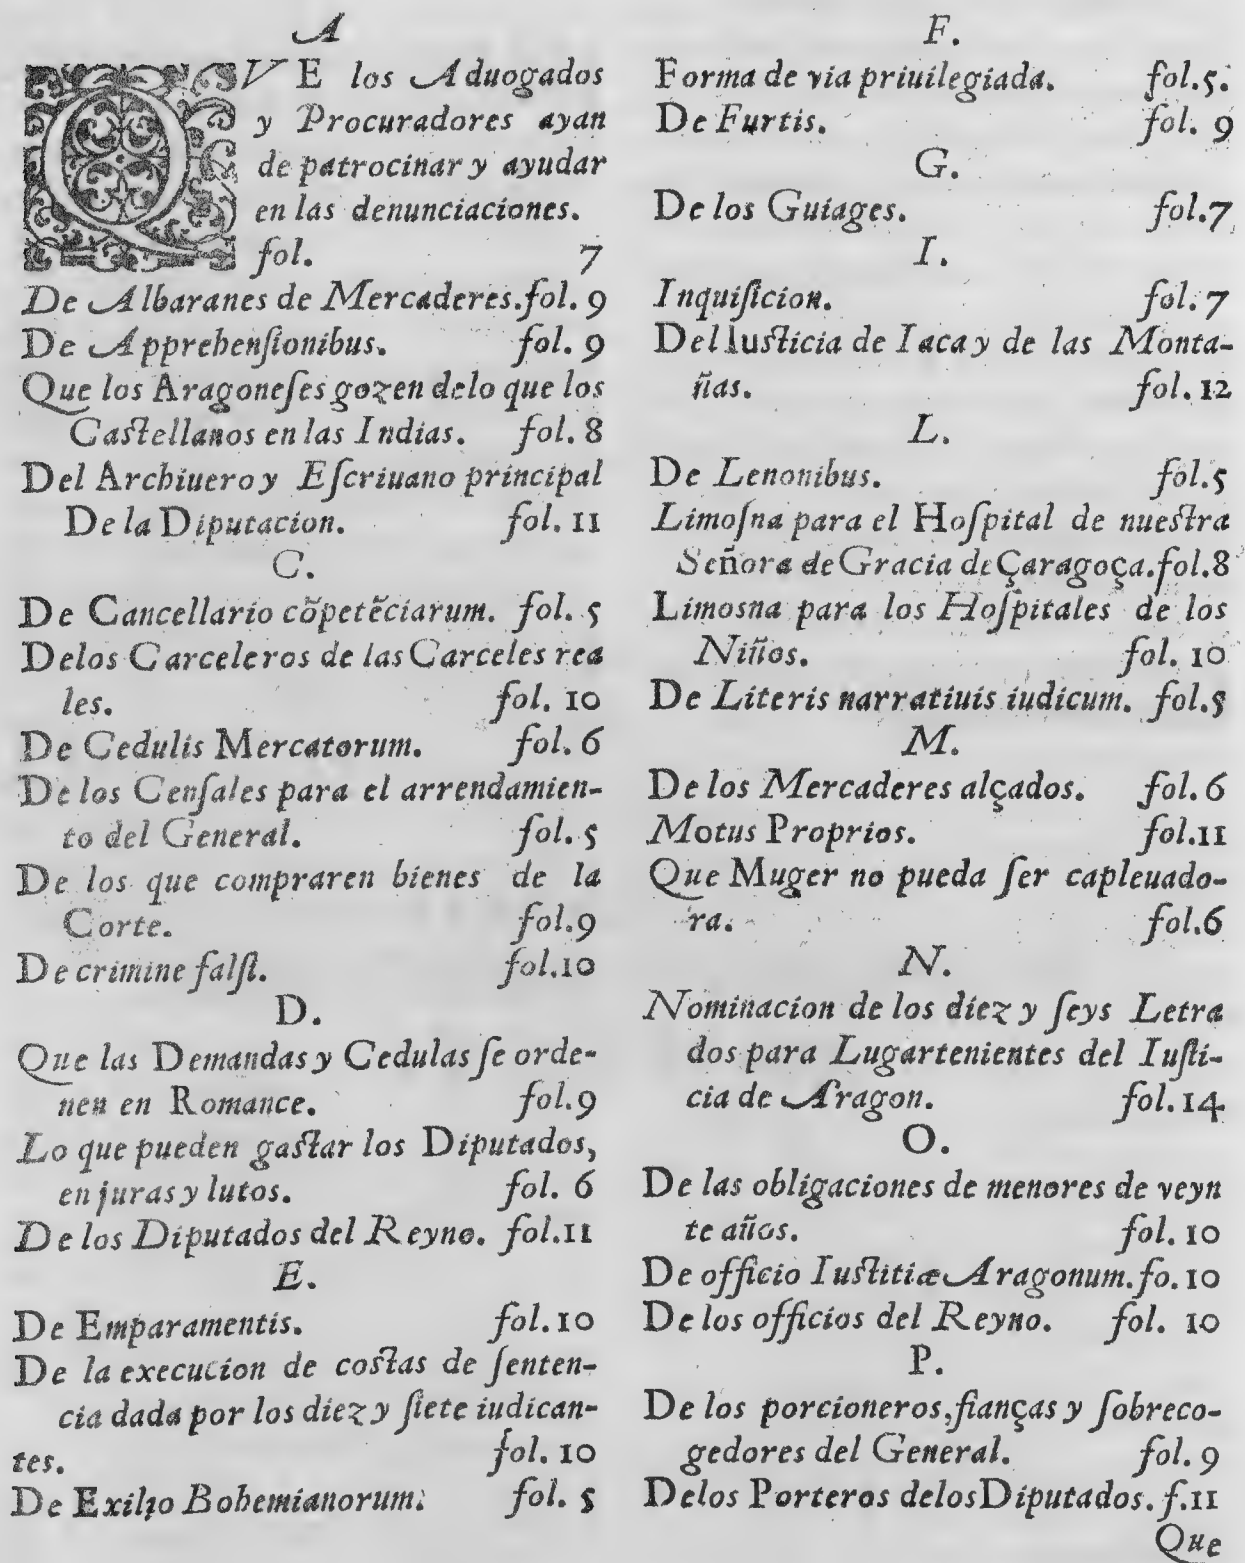 A
QVE los Aduogados
y Procuradores ayan
de patrocinar y ayudar
en las denunciaciones.
fol. 7
De Albaranes de Mercaderes. fol. 9
De Apprehensionibus. fol. 9
Que los Aragoneſes gozen delo que los
Castellanos en las Indias. fol. 8
Del Archiuero y Eſcriuano principal
De la Diputacion. fol. 11
C.
De Cancellario cõpetẽciarum. fol. 5
Delos Carceleros de las Carceles rea
les. fol. 10
De Cedulis Mercatorum. fol. 6
De los Cenſales para el arrendamien-
to del General. fol. 5
De los que compraren bienes de la
Corte. fol. 9
De crimine falſi. fol. 10
D.
Que las Demandas y Cedulas ſe orde-
nen en Romance. fol. 9
Lo que pueden gaſtar los Diputados,
en juras y lutos. fol. 6
De los Diputados del Reyno. fol. 11
E.
De Emparamentis. fol. 10
De la execucion de coſtas de ſenten-
cia dada por los diez y ſiete iudican-
tes. fol. 10
De Exilio Bohemianorum. fol. 5
F.
Forma de via priuilegiada. fol. 5.
De Furtis. fol. 9
G.
De los Guiages. fol. 7
I.
Inquiſicion. fol. 7
Del Iuſticia de Iaca y de las Monta-
ñas. fol. 12
L.
De Lenonibus. fol. 5
Limoſna para el Hoſpital de nueſtra
Señora de Gracia de Çaragoça. fol. 8
Limosna para los Hoſpitales de los
Niños. fol. 10
De Literis narratiuis iudicum. fol. 5
M.
De los Mercaderes alçados. fol. 6
Motus Proprios. fol. 11
Que Muger no pueda ſer capleuado-
ra. fol. 6
N.
Nominacion de los diez y ſeys Letra
dos para Lugartenientes del Iuſti-
cia de Aragon. fol. 14
O.
De las obligaciones de menores de veyn
te años. fol. 10
De officio Iuſtitiæ Aragonum. fo. 10
De los officios del Reyno. fol. 10
P.
De los porcioneros, fianças y ſobreco-
gedores del General. fol. 9
Delos Porteros delos Diputados. f. 11
Que